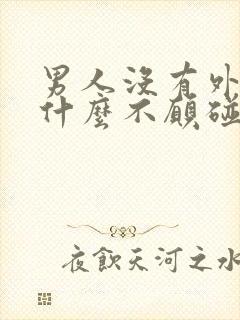 男人沒有外
什麼不願碰
夜飲天河之水